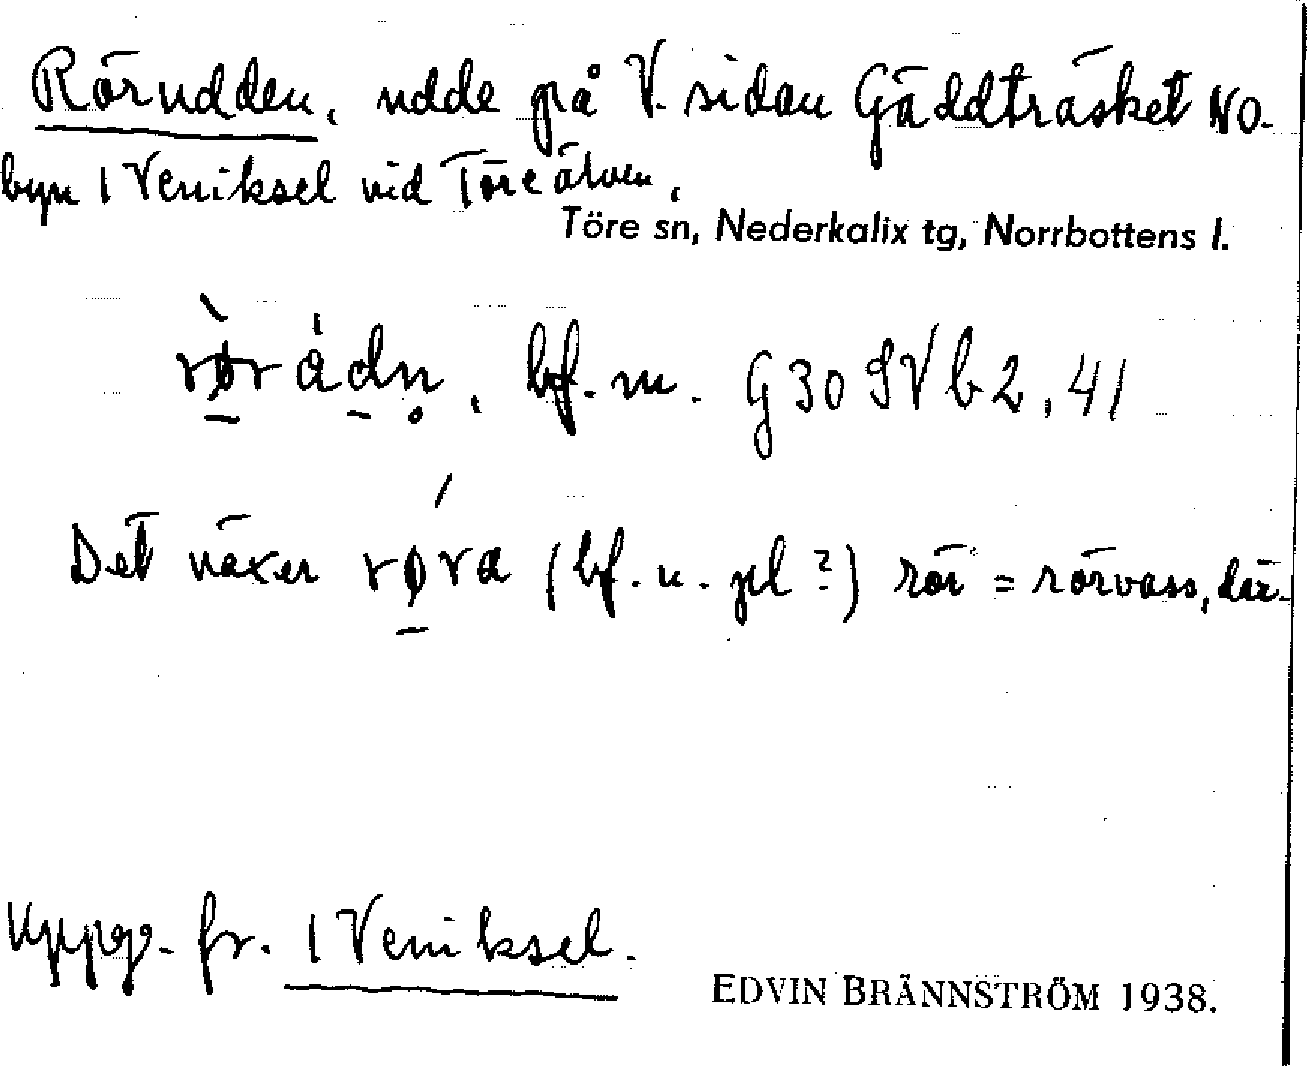 Rörudden, udde på V. sidan Gäddträsket NO.
byn 1 Veniksel vid Töreälven.
Töre sn, Nederkalix tg, Norrbottens l.
rø̀rådn̥, bf. m. G30 SV b2, 41
Det växer rǿra (bf. n. pl?) rör = rörvass, där.
Uppg. fr. 1 Veniksel.
EDVIN BRÄNNSTRÖM 1938.